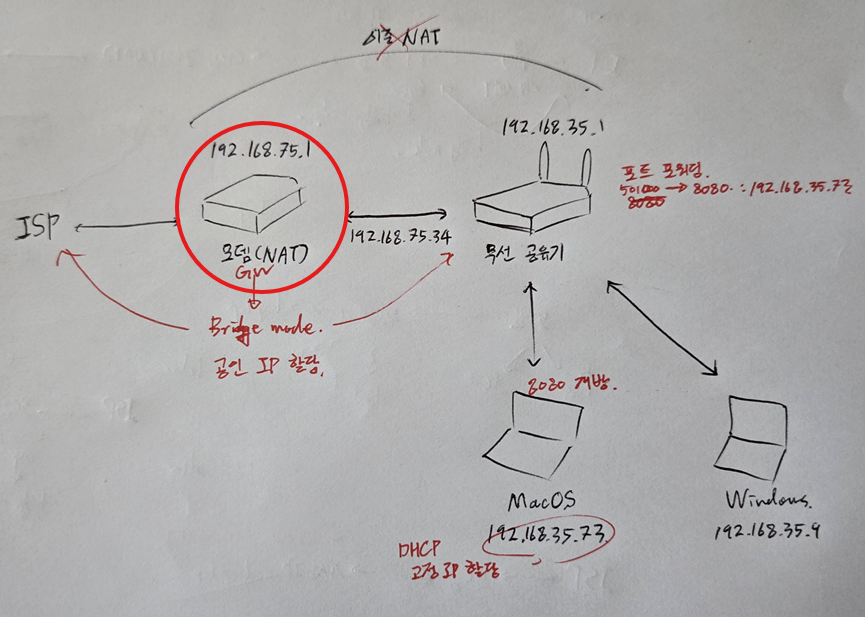 이중 NAT
192.168.35.1
192.168.75.1
포트 포워딩.
50100 → 8080. : 192.168.35.73
8080
ISP
192.168.75.34
모뎀(NAT)
GW
무선 공유기
Bridge mode.
공인 IP 할당.
8080 개방.
MacOS
192.168.35.73
Windows.
192.168.35.9
DHCP
고정 IP 할당